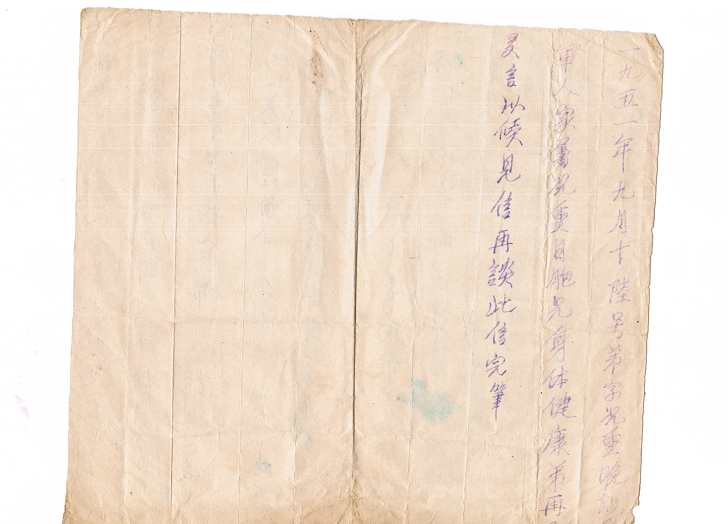 一九五一年九月十陸号弟字况重晚
军人家属况重目胞兄身体健康弟再
叐言以候見信再談此信完筆